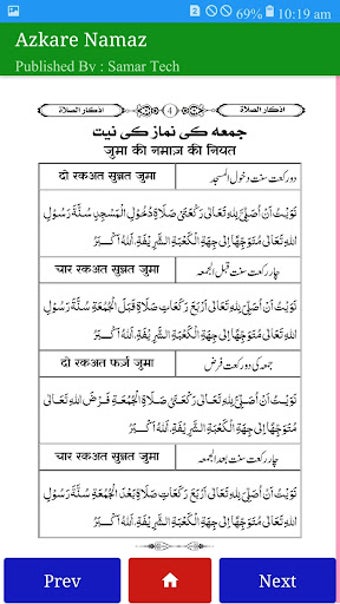 69% 10:19 am
Azkare Namaz
Published By : Samar Tech
اذکار الصلاة 4 اذکار الصلاة
جمعہ کی نماز کی نیت
जुमा की नमाज़ की नियत
दो रकअत सुन्नत जुमा دو رکعت سنت دخول المسجد
نَوَيْتُ اَنْ اُصَلِّيَ لِلّٰهِ تَعَالٰى رَكْعَتَىْ صَلَاةِ دُخُوْلِ الْمَسْجِدِ سُنَّةُ رَسُوْلِ
اللهِ تَعَالٰى مُتَوَجِّهًا اِلٰى جِهَةِ الْكَعْبَةِ الشَّرِيْفَةِ، اَللهُ اَكْبَرُ
चार रकअत सुन्नत जुमा چار رکعت سنت قبل الجمعہ
نَوَيْتُ اَنْ اُصَلِّيَ لِلّٰهِ تَعَالٰى اَرْبَعَ رَكَعَاتِ صَلَاةِ قَبْلَ الْجُمُعَةِ سُنَّةُ رَسُوْلِ
اللهِ تَعَالٰى مُتَوَجِّهًا اِلٰى جِهَةِ الْكَعْبَةِ الشَّرِيْفَةِ، اَللهُ اَكْبَرُ
दो रकअत फर्ज़ जुमा جمعہ کی دو رکعت فرض
نَوَيْتُ اَنْ اُصَلِّيَ لِلّٰهِ تَعَالٰى رَكْعَتَىْ صَلَاةِ الْجُمُعَةِ فَرْضُ اللهِ تَعَالٰى
مُتَوَجِّهًا اِلٰى جِهَةِ الْكَعْبَةِ الشَّرِيْفَةِ، اَللهُ اَكْبَرُ
चार रकअत सुन्नत जुमा چار رکعت سنت بعد الجمعہ
نَوَيْتُ اَنْ اُصَلِّيَ لِلّٰهِ تَعَالٰى اَرْبَعَ رَكَعَاتِ صَلَاةِ بَعْدَ الْجُمُعَةِ سُنَّةُ رَسُوْلِ
اللهِ تَعَالٰى مُتَوَجِّهًا اِلٰى جِهَةِ الْكَعْبَةِ الشَّرِيْفَةِ، اَللهُ اَكْبَرُ
Prev Next